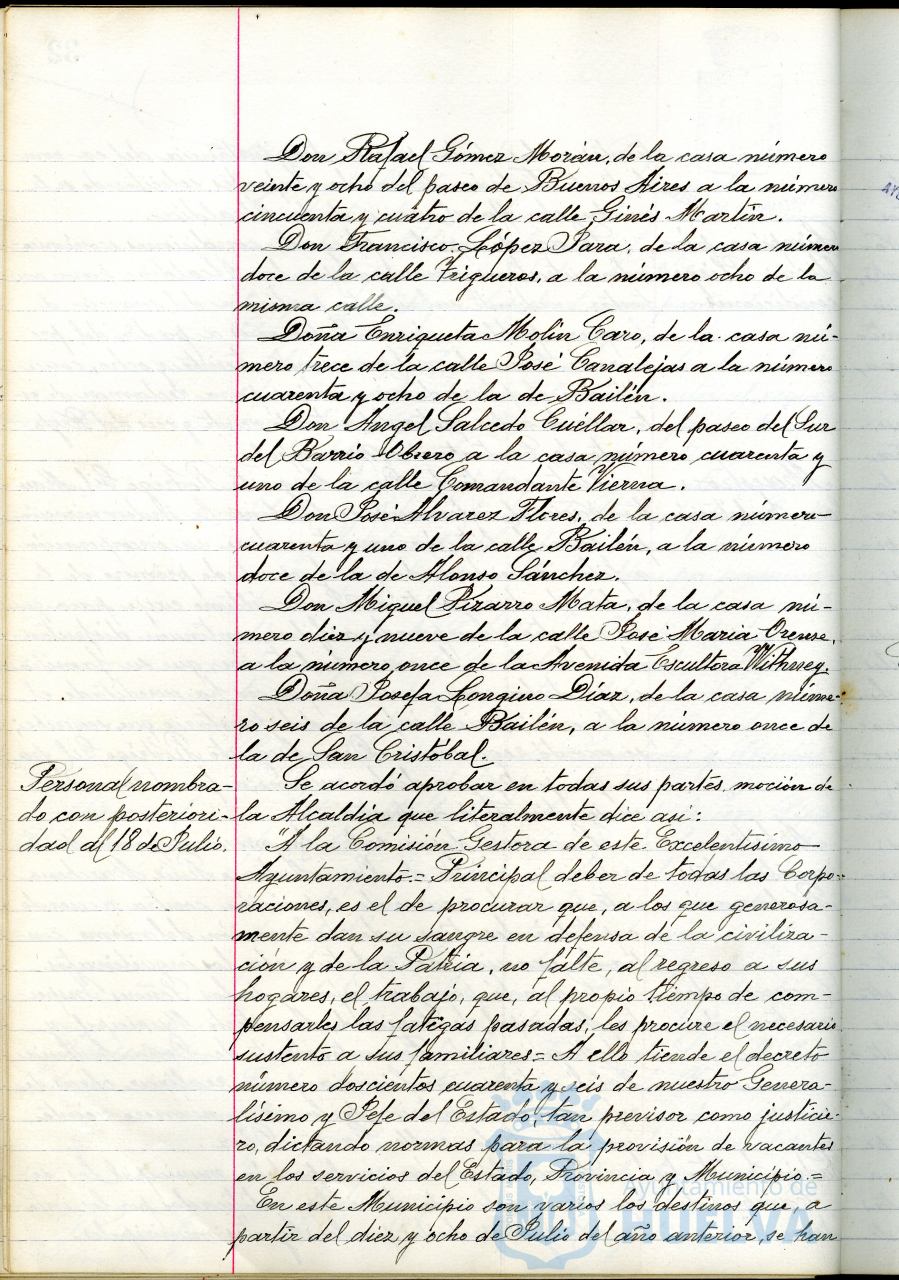 Don Rafael Gómez Morán, de la casa número
veinte y ocho del paseo de Buenos Aires a la número
cincuenta y cuatro de la calle Ginés Martín.
Don Francisco López Jara, de la casa número
doce de la calle Trigueros, a la número ocho de la
misma calle.
Doña Enriqueta Molín Caro, de la casa nú-
mero trece de la calle José Canalejas a la número
cuarenta y ocho de la de Bailén.
Don Angel Salcedo Cuéllar, del paseo del Sur
del Barrio Obrero a la casa número cuarenta y
uno de la calle Comandante Vierna.
Don José Alvarez Flores, de la casa número
cuarenta y uno de la calle Bailén, a la número
doce de la de Alonso Sánchez.
Don Miguel Pizarro Mata, de la casa nú-
mero diez y nueve de la calle José Maria Orense,
a la número once de la Avenida Escultora
Doña Josefa Longino Díaz, de la casa núme-
ro seis de la calle Bailén, a la número once de
la de San Cristóbal.
Personal nombra-
do con posteriori-
dad al 18 de Julio.
Se acordó aprobar en todas sus partes, moción de
la Alcaldía que literalmente dice así:
"A la Comisión Gestora de este Excelentísimo
Ayuntamiento.= Principal deber de todas las Corpo-
raciones, es el de procurar que, a los que generosa-
mente dan su sangre en defensa de la civiliza-
ción y de la Patria, no falte, al regreso a sus
hogares, el trabajo, que, al propio tiempo de com-
pensarles las fatigas pasadas, les procure el necesario
sustento a sus familiares= A ello tiende el decreto
número doscientos cuarenta y seis de nuestro Genera-
lísimo y Jefe del Estado, tan previsor como justicie-
ro, dictando normas para la provisión de vacantes
en los servicios del Estado, Provincia y Municipio.=
En este Municipio son varios los destinos que, a
partir del diez y ocho de Julio del año anterior, se han
Ayuntamiento de
HUELVA